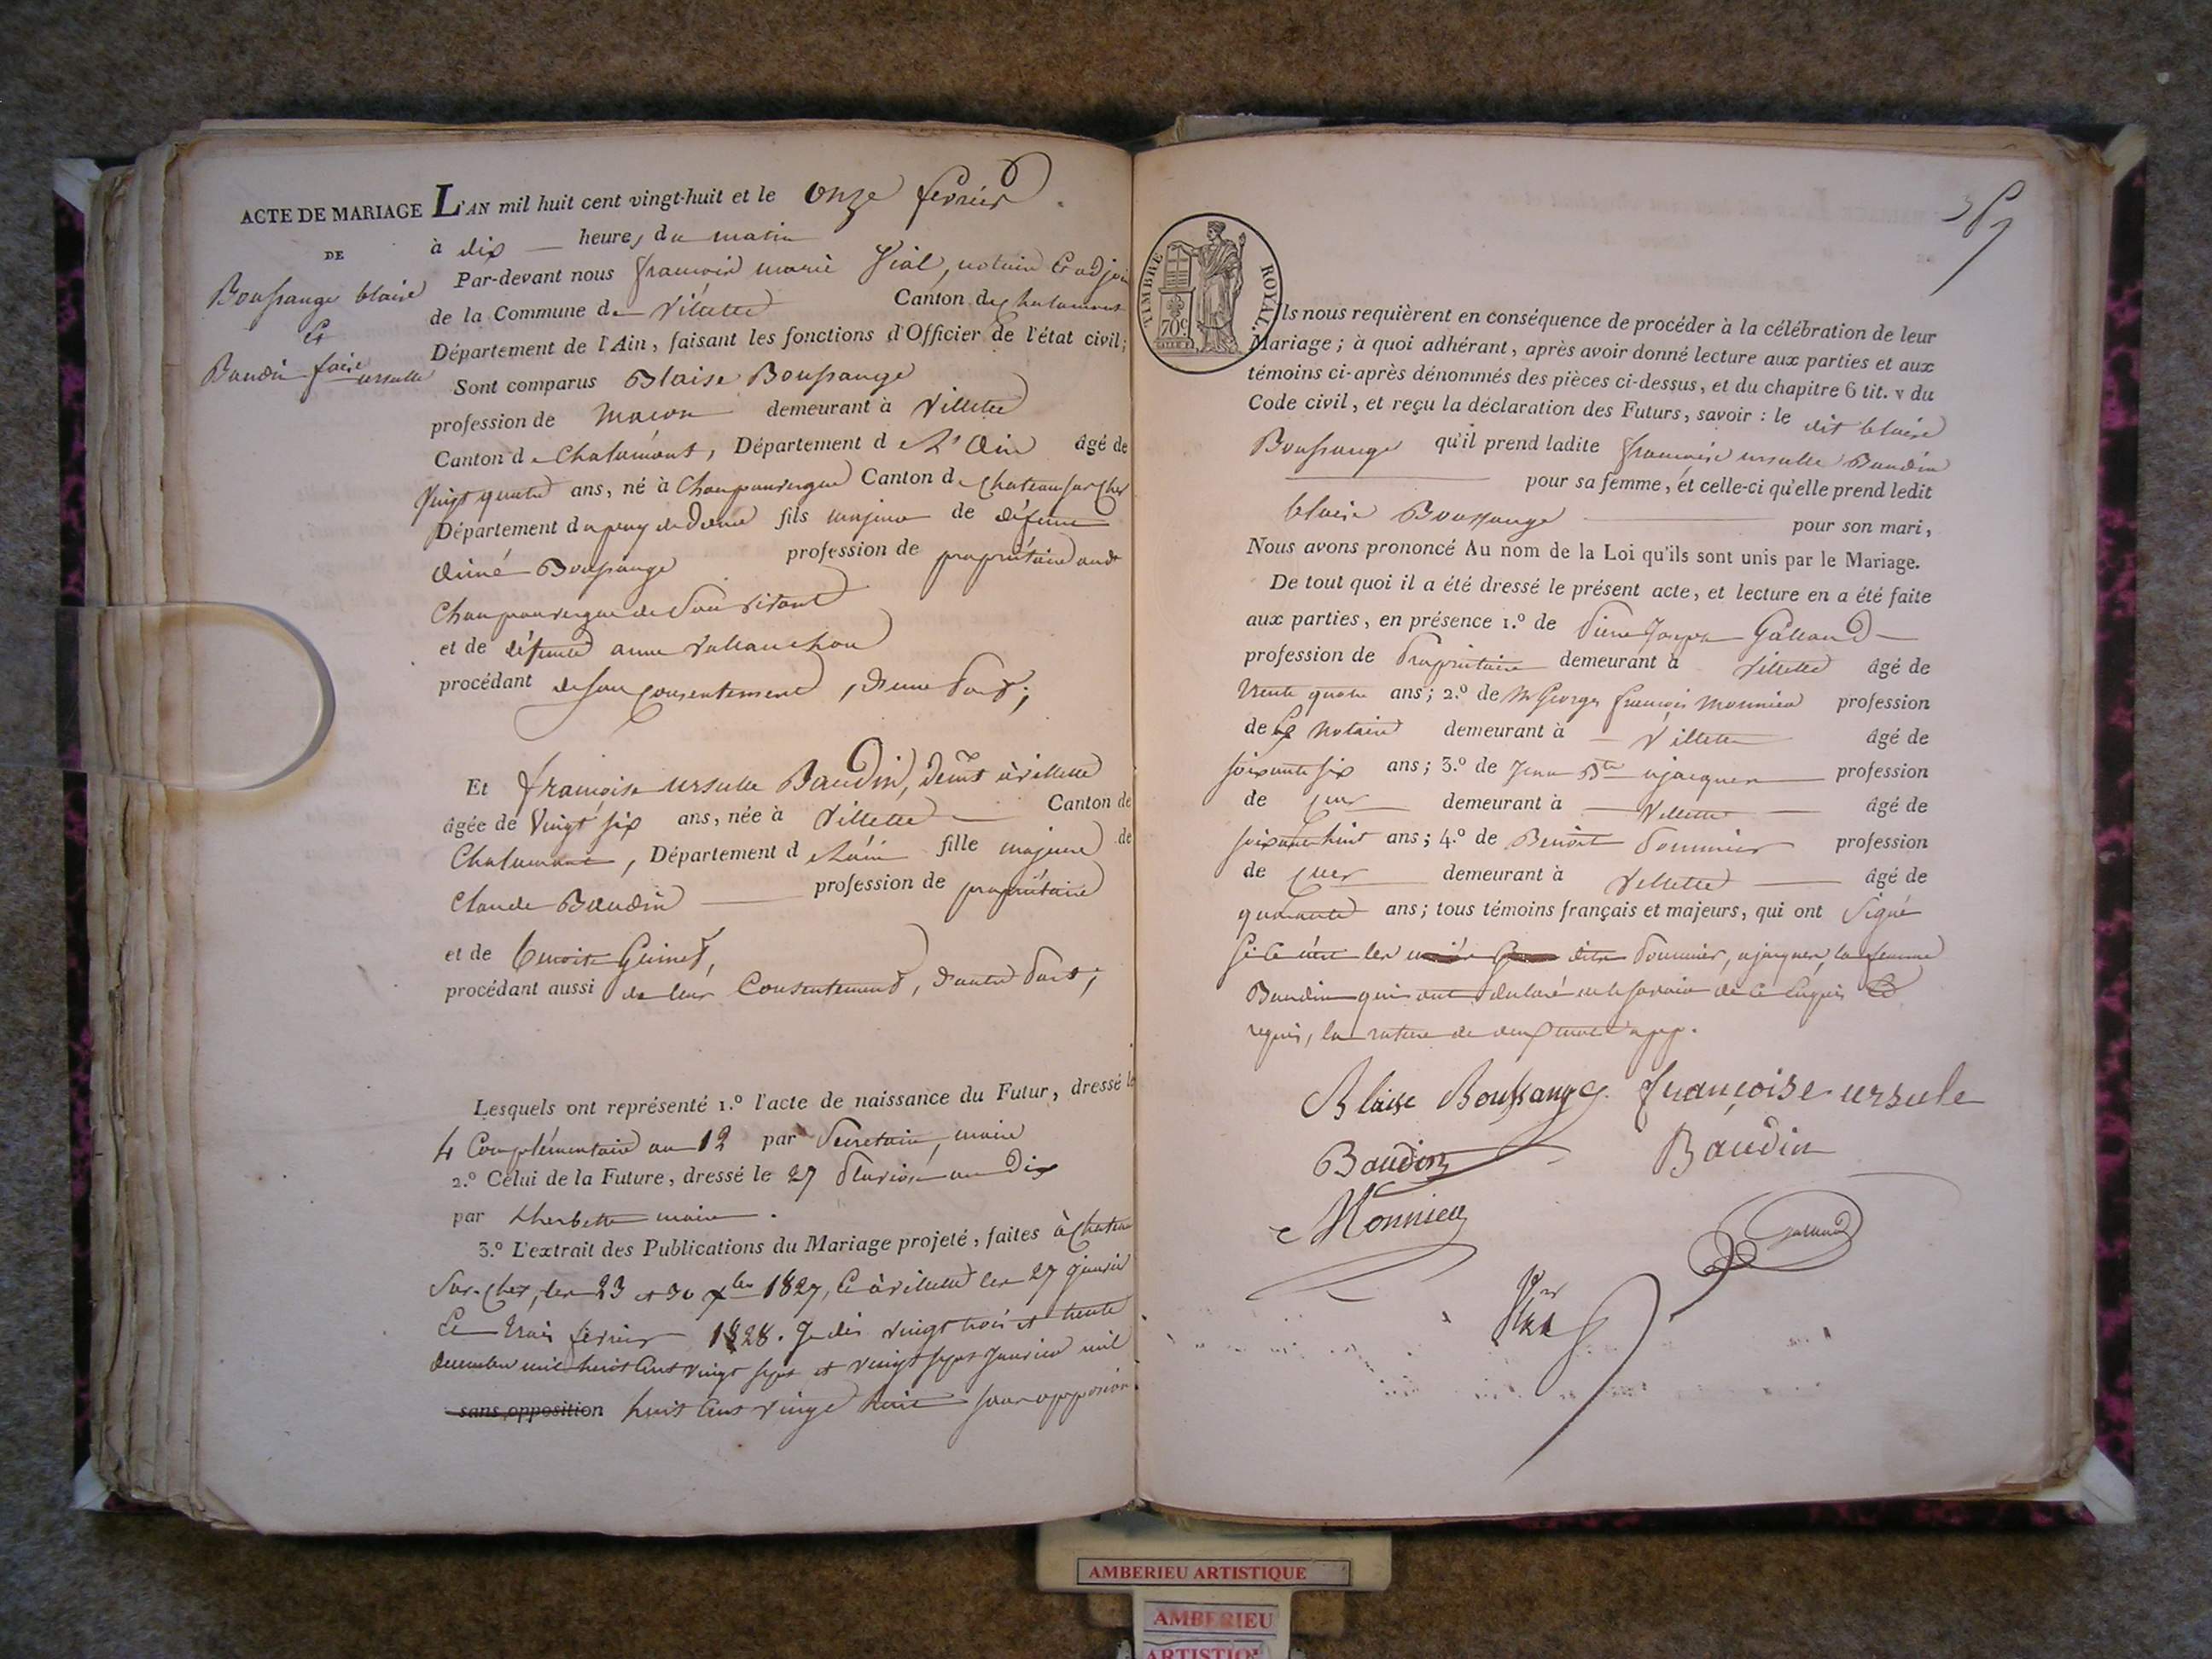 ACTE DE MARIAGE
DE
Boussange blaise
Et
Baudin foise ursulle
L'AN mil huit cent vingt-huit et le onze fevrier
à dix heures du matin
Par-devant nous francois marie Vial, notaire & adjoin
de la Commune de Villette Canton de Chalamont
Département de l'Ain, faisant les fonctions d'Officier de l'état civil;
Sont comparus Blaise Boussange
profession de Macon demeurant à Villette
Canton de Chalamont, Département de L'Ain âgé de
Vingt quatre ans, né à Champauvergne Canton de Chateau sur Cher
Département du puy de Dome fils majeur de défunt
Aimé Boussange profession de propriétaire audt
Champauvergne de Son vivant
et de défunte anne
procédant de son Consentement, d'une Part;
Et françoise ursulle Baudin, demt à villette
âgée de Vingt six ans, née à Villette Canton de
Chalamont, Département de L'ain fille majeure de
Claude Baudin profession de propriétaire
et de Benoite Guinet,
procédant aussi de leur Consentement, d'autre Part;
Lesquels ont représenté 1.º l'acte de naissance du Futur, dressé le
4 Complémentaire an 12 par Secretain, maire
2.º Celui de la Future, dressé le 27 Pluviose an Dix
par Lherbette maire.
3.º L'extrait des Publications du Mariage projeté, faites à Chateau
Sur-Cher, les 23 et 30 xbre 1827, & à villette les 27 janvier
& trois fevrier 1828. Je dis vingt trois et trente
decembre mil huit Cent vingt sept et vingt sept janvier mil
sans opposition huit Cent vingt huit sans opposition
TIMBRE ROYAL.
70c
Ils nous requièrent en conséquence de procéder à la célébration de leur
Mariage; à quoi adhérant, après avoir donné lecture aux parties et aux
témoins ci-après dénommés des pièces ci-dessus, et du chapitre 6 tit. v du
Code civil, et reçu la déclaration des Futurs, savoir: le dit blaise
Boussange qu'il prend ladite francoise ursulle Baudin
pour sa femme, et celle-ci qu'elle prend ledit
blaise Boussange pour son mari,
Nous avons prononcé Au nom de la Loi qu'ils sont unis par le Mariage.
De tout quoi il a été dressé le présent acte, et lecture en a été faite
aux parties, en présence 1.º de Pierre Joseph Galland
profession de Propriétaire demeurant à Villette âgé de
trente quatre ans; 2.º de Mr Georges françois Monnier profession
de notaire demeurant à Villette âgé de
soixante six ans; 3.º de Jean Bte ajacques profession
de demeurant à Villette âgé de
soixante huit ans; 4.º de Benoit Pommier profession
de demeurant à Villette âgé de
quarante ans; tous témoins français et majeurs, qui ont Signé
Si Ce n'est les dits Pommier, ajacques, la femme
Baudin qui ont déclaré ne le savoir de Ce Enquis &
requis, la rature de deux mots app.
Blaise Boussange. françoise ursule
Baudin Baudin
Monnier Galland
Vial
AMBERIEU ARTISTIQUE
AMBERIEU
ARTISTIQUE